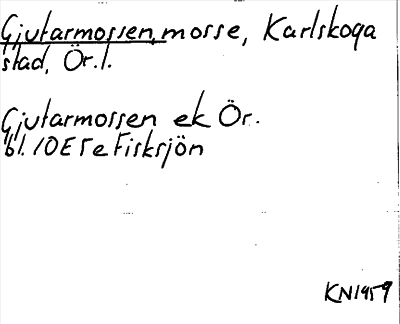 Gjutarmossen, mosse, Karlskoga
stad, Ör.l.
Gjutarmossen ek Ör.
bl. 10E 5e Fisksjön
KN1959